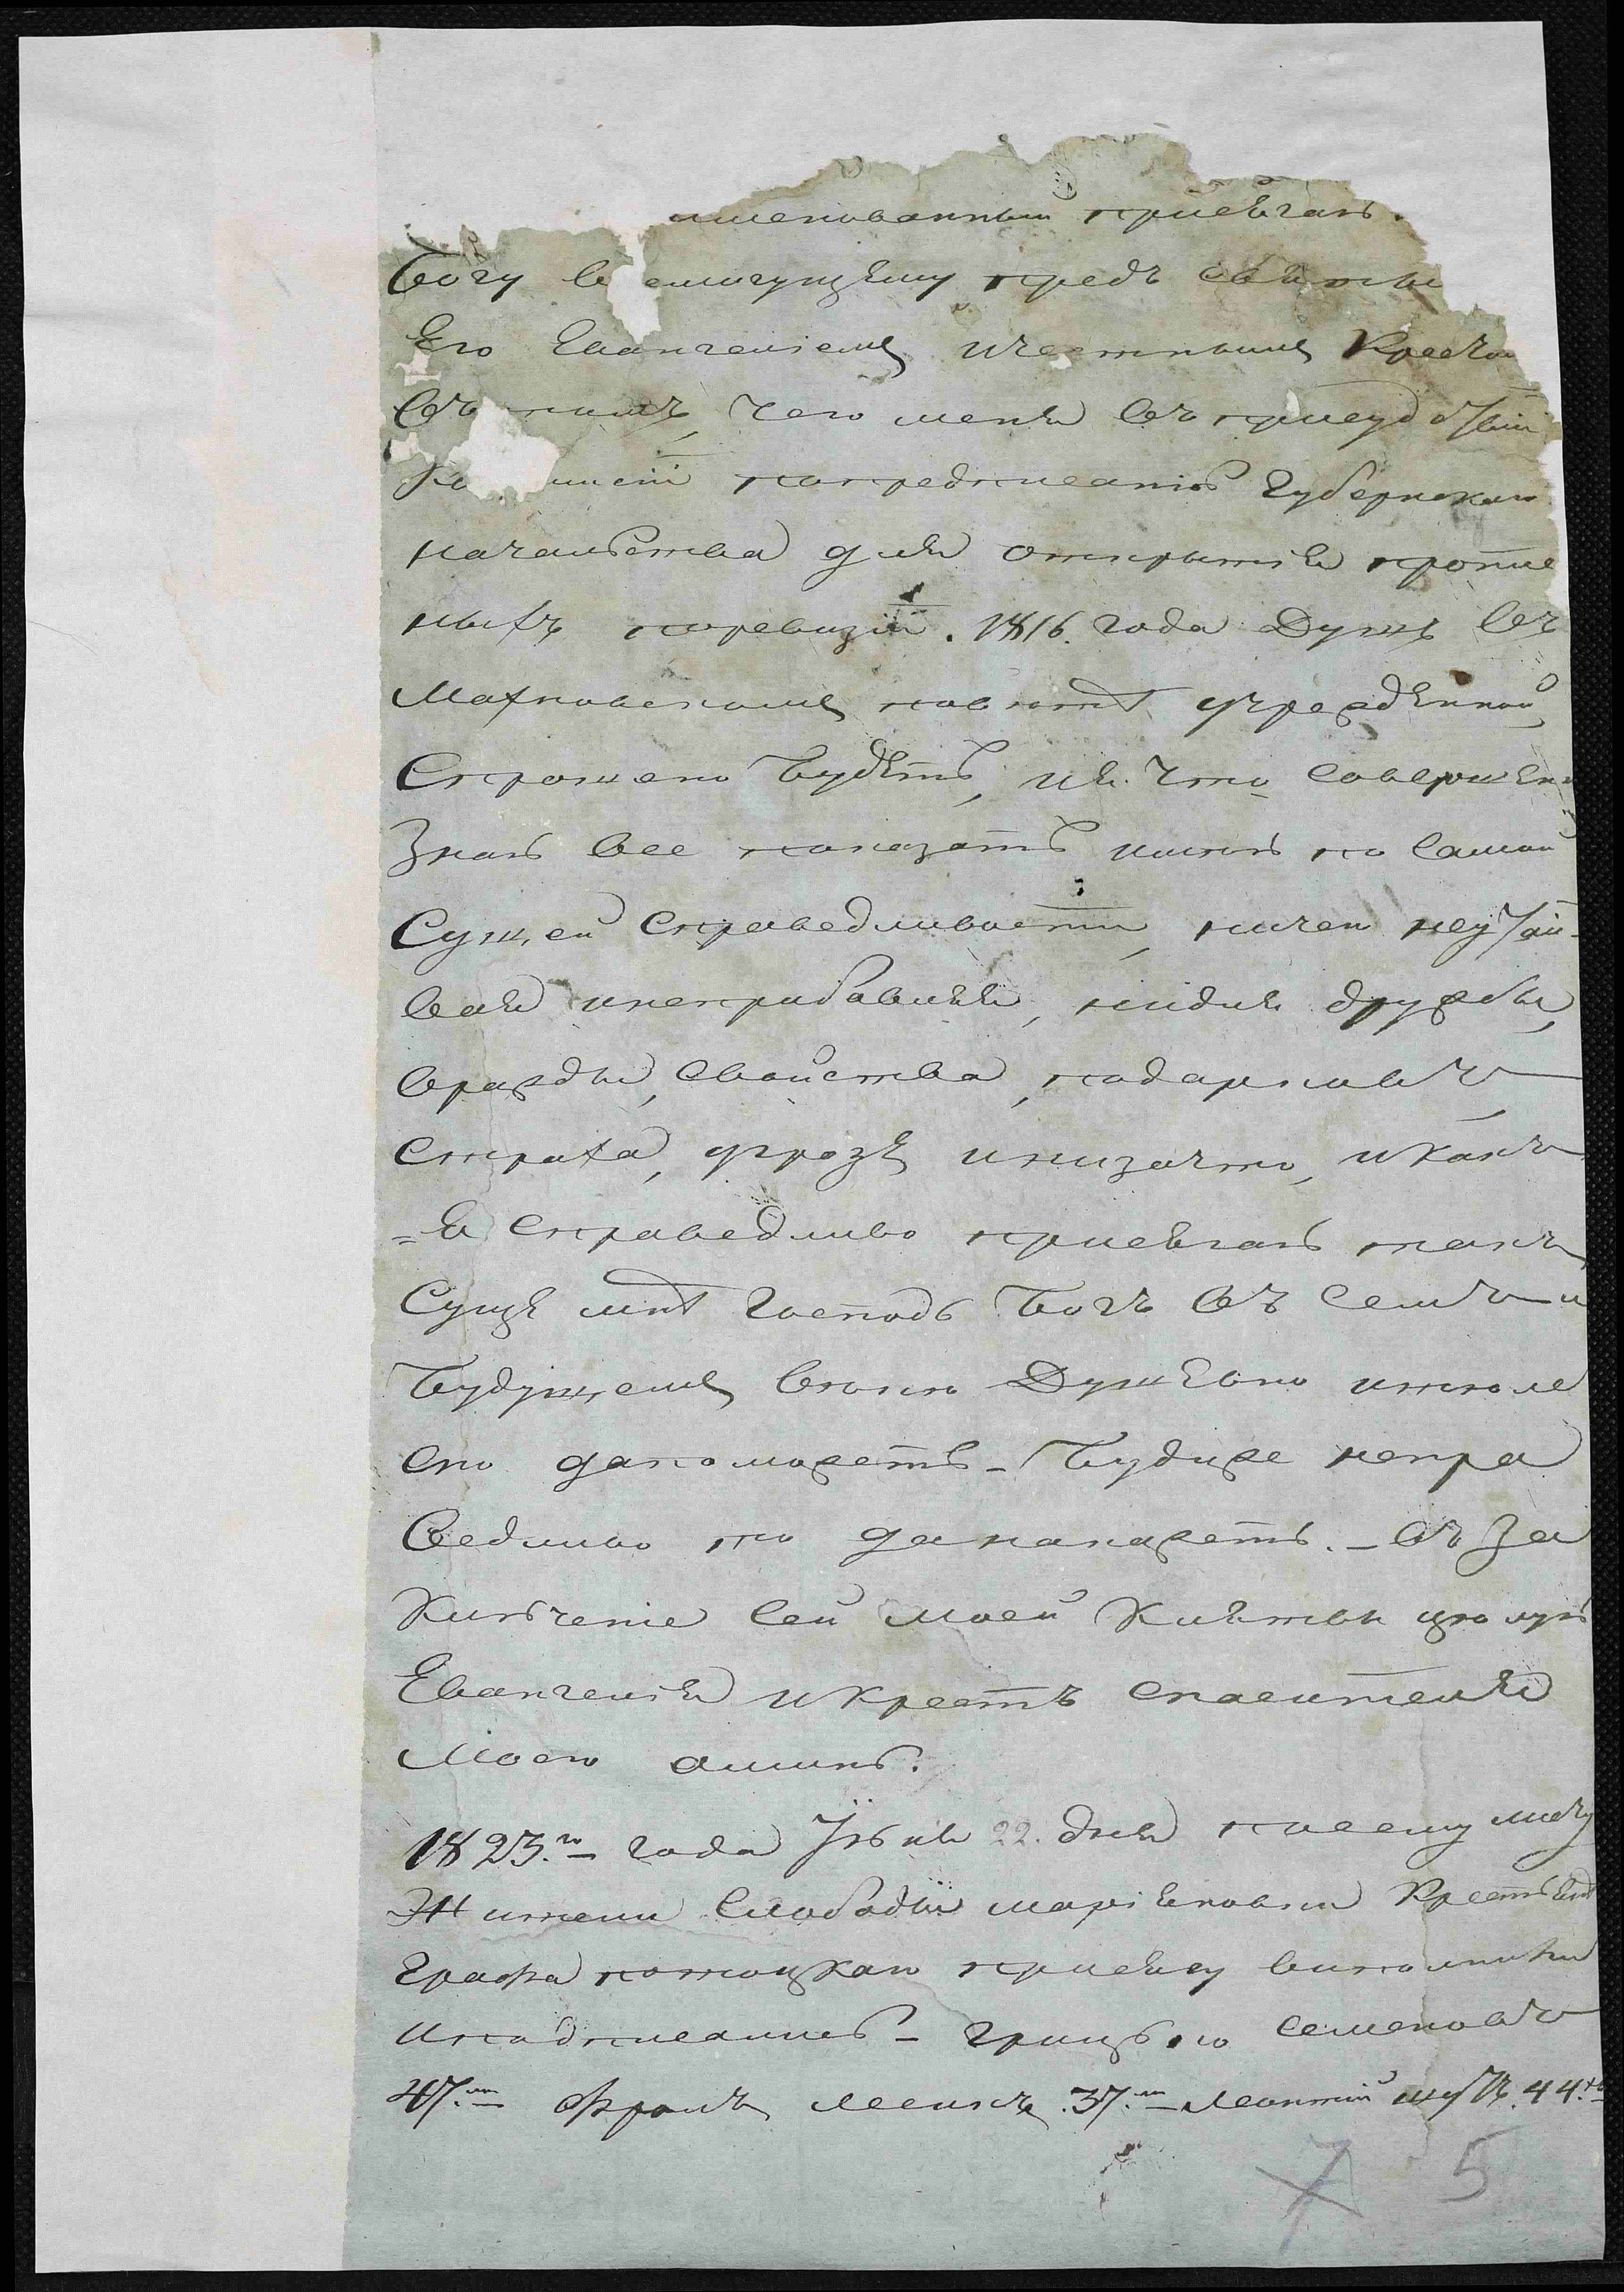 именованный присягаю
Богу в емогущему предъ святы
Его Евангелiемъ ичестнымъ Кресто
въ томъ, чего меня въ присудствiи
Ко мисiи попредписанiю Губернскаго
начальства для открытiя пропис
ныхъ поревизiи. 1816. года Душъ въ
Махновскомъ поветѣ учрежденной,
Спрошено будетъ, ия что совершен
Знаю все показать имею по самой
Сущей справедливости, ничего неутаи-
вая инеприбавляя, нидля дружбы,
вражды, свойства, подарковъ
страха, угрозъ инизачто, икакъ
=я справедливо присягаю такъ
Суще мнѣ Господь Богъ въ семъ и
Будущемъ веку Душевно ителе
сно дапоможетъ - Будиже непра
ведливо то данакажетъ. - въ За
Ключенiе сей моей клятвы целую
Евангелiя икрестъ спасителя
Моего аминь.
1823.го года Iюня 22. дня посему листу
Жители слободы марiяновки Крестьяне
Графа потоцкаго присягу выполнили
иподписались - грицько семеновъ
47.ми Фролъ лесикъ 37.ми Леонтiй 44.хъ
7 5